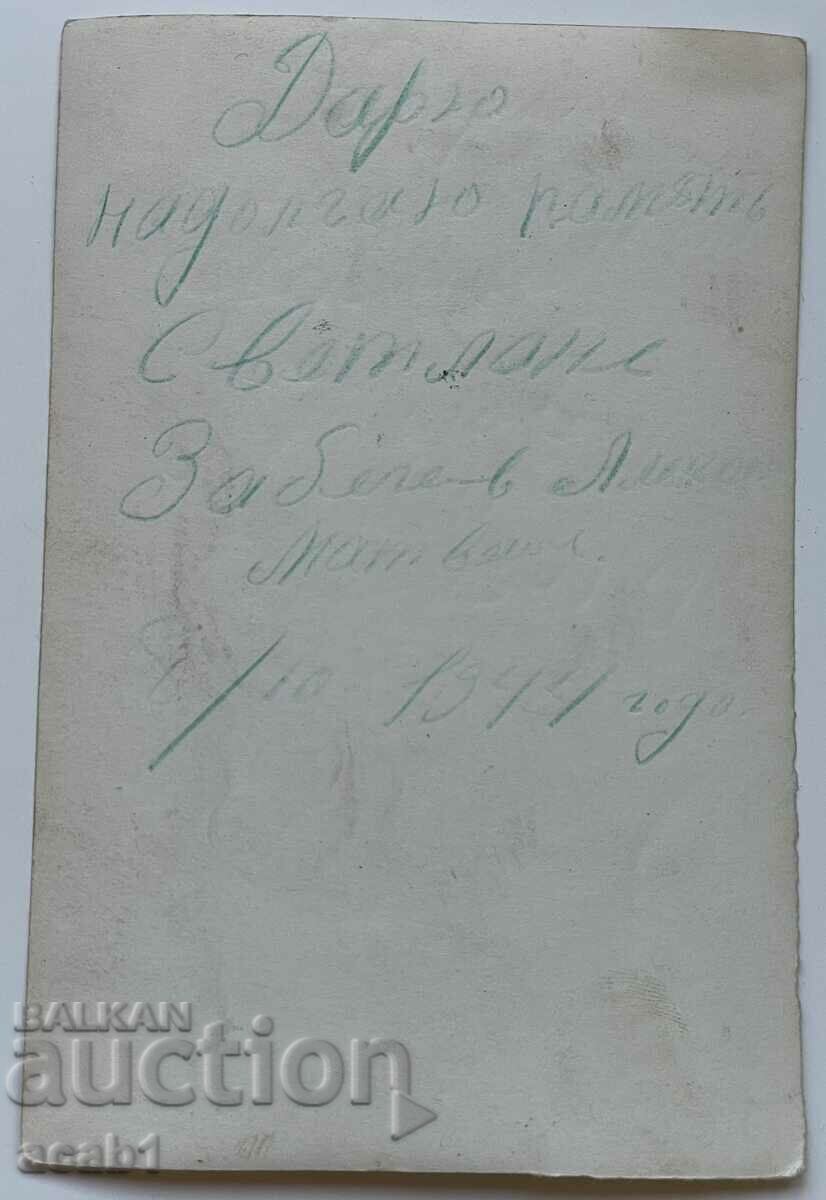 Дарю
надолгаю память
Светлане
Забегаев
Матвеич.
8/10 1944 года.
BALKAN
auction
acab1